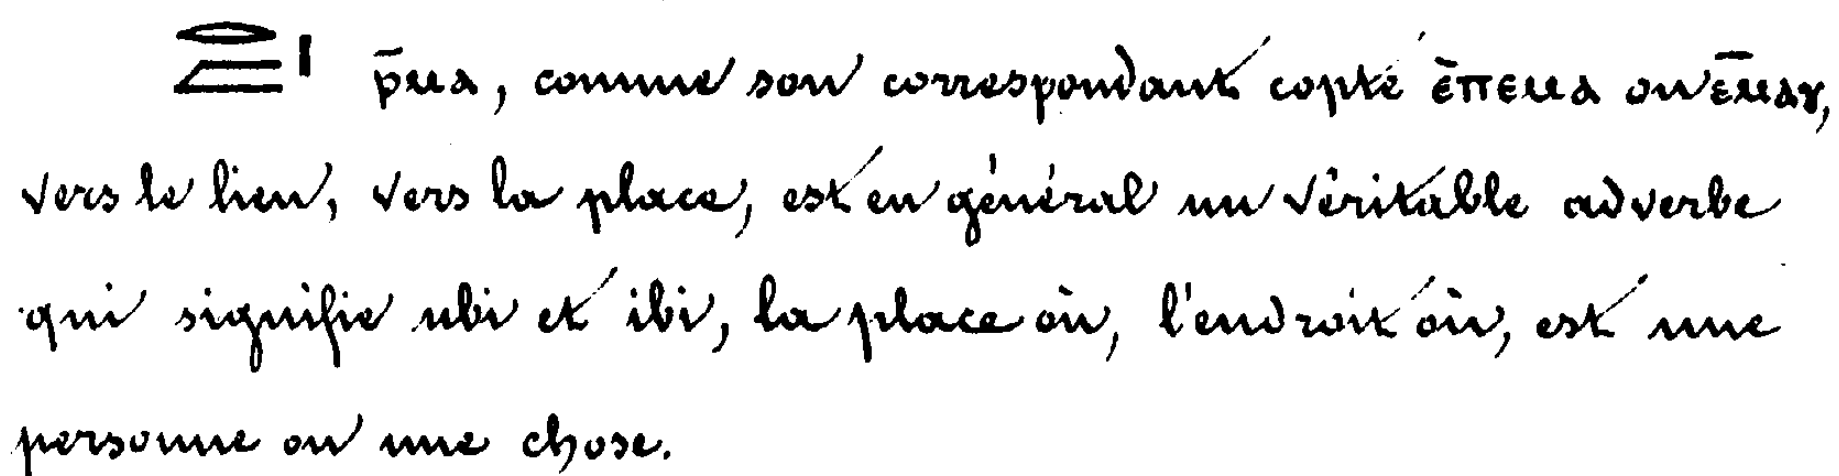 𓂋𓐛𓏤 ⲣ̄ⲙⲁ, comme son correspondant copte ⲉ̄ⲡⲉⲙⲁ ou ⲉ̄ⲙⲁⲩ,
vers le lieu, vers la place, est en général un véritable adverbe
qui signifie ubi et ibi, la place où, l'endroit où, est une
personne ou une chose.